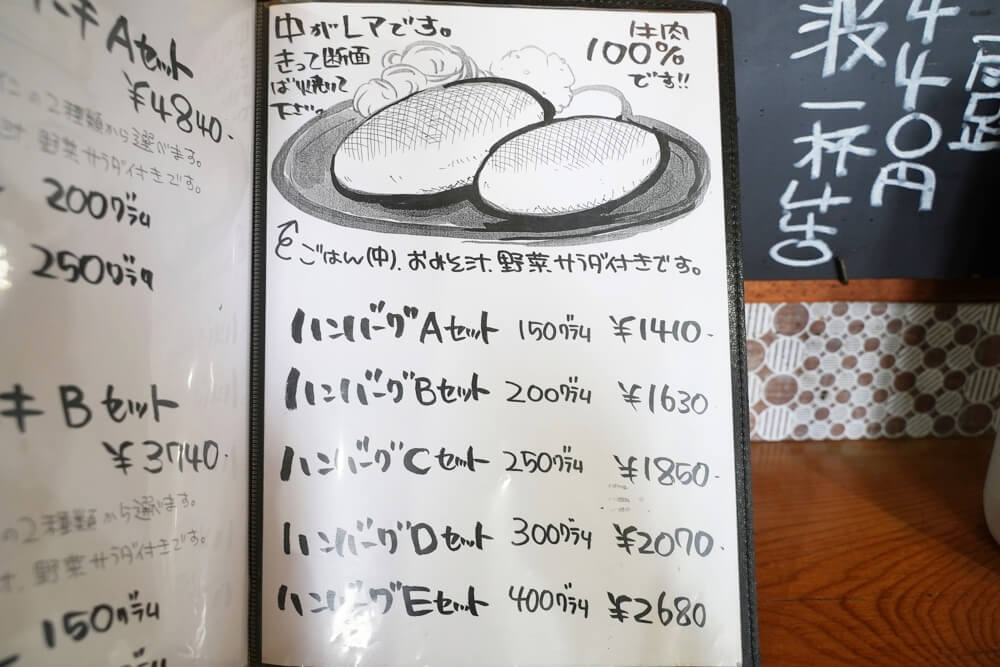 キ Aセット
¥4840.
の2種類から選べます。
野菜サラダ付きです。
200グラム
250グラム
キ Bセット
¥3740.
の2種類から選べます。
野菜サラダ付きです。
150グラム
中がレアです。
きって断面
下さい
牛肉
100%
です!!
ごはん(中)、おみそ汁、野菜サラダ付きです。
ハンバーグAセット 150グラム ¥1410.
ハンバーグBセット 200グラム ¥1630
ハンバーグCセット 250グラム ¥1850.
ハンバーグDセット 300グラム ¥2070.
ハンバーグEセット 400グラム ¥2680
440円
一杯